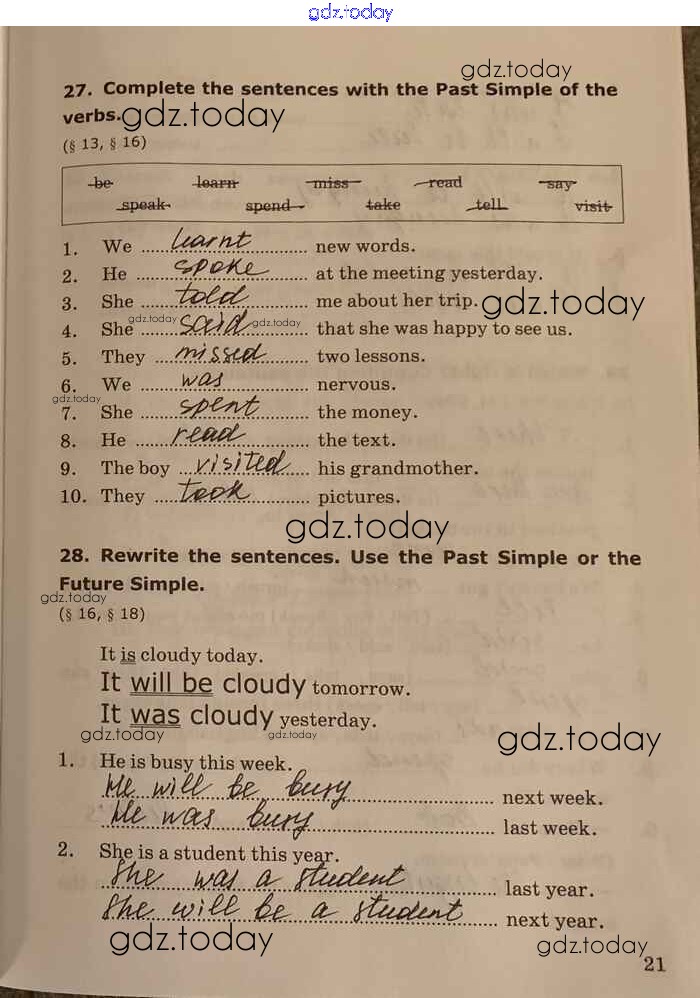 gdz.today
gdz.today
27. Complete the sentences with the Past Simple of the
verbs. gdz.today
(§ 13, § 16)
be learn miss read say
speak spend take tell visit
1. We learnt new words.
2. He spoke at the meeting yesterday.
3. She told me about her trip. gdz.today
gdz.today gdz.today
4. She said that she was happy to see us.
5. They missed two lessons.
6. We was nervous.
gdz.today
7. She spent the money.
8. He read the text.
9. The boy visited his grandmother.
10. They took pictures.
gdz.today
28. Rewrite the sentences. Use the Past Simple or the
Future Simple.
gdz.today
(§ 16, § 18)
It is cloudy today.
It will be cloudy tomorrow.
It was cloudy yesterday.
gdz.today gdz.today gdz.today
1. He is busy this week.
He will be busy next week.
He was busy last week.
2. She is a student this year.
She was a student last year.
She will be a student next year.
gdz.today gdz.today
21